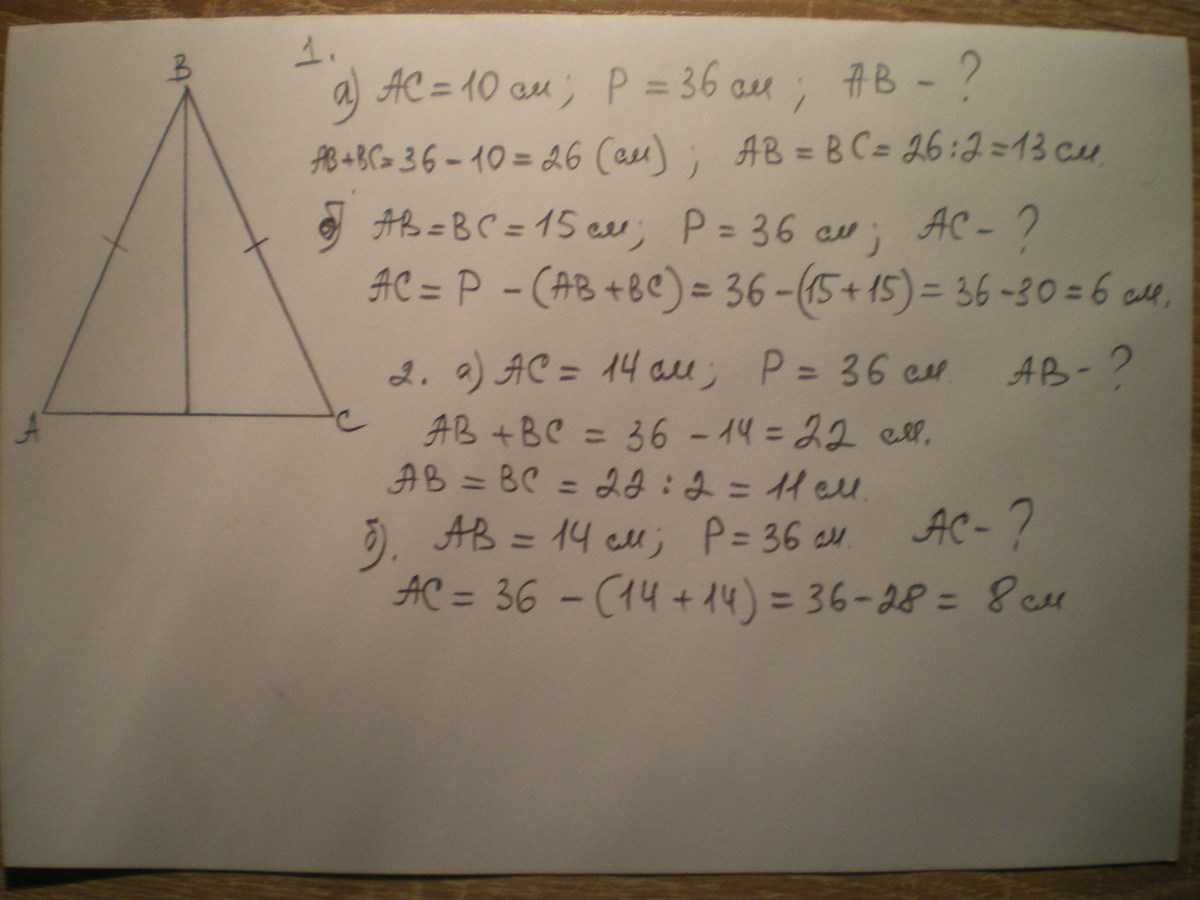 B
1.
а) AC = 10 см; P = 36 см; AB - ?
AB+BC = 36 - 10 = 26 (см); AB = BC = 26 : 2 = 13 см.
б) AB = BC = 15 см; P = 36 см; AC - ?
AC = P - (AB + BC) = 36 - (15 + 15) = 36 - 30 = 6 см.
2. а) AC = 14 см; P = 36 см. AB - ?
A
C
AB + BC = 36 - 14 = 22 см.
AB = BC = 22 : 2 = 11 см.
б). AB = 14 см; P = 36 см. AC - ?
AC = 36 - (14 + 14) = 36 - 28 = 8 см